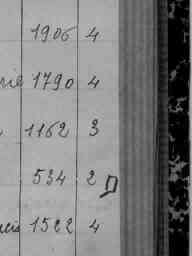 1906 4
1790 4
1162 3
534 2
1522 4